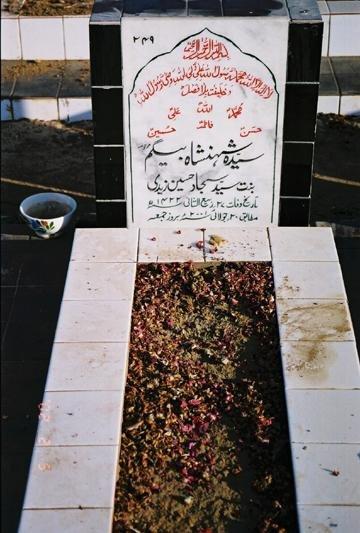 ۲۴۹
بسم الله الرحمن الرحیم
لا اله الا الله محمد رسول الله علی ولی الله وصی رسول الله
و خلیفته بلا فصل
محمد الله علی
حسن فاطمہ حسین
سیدہ شہنشاہ بیگم
بنت سید سجاد حسین زیدی
تاریخ وفات ۲۷ ربیع الثانی ۱۴۲۲ھ
مطابق ۲۰ جولائی ۲۰۰۱ء بروز جمعہ